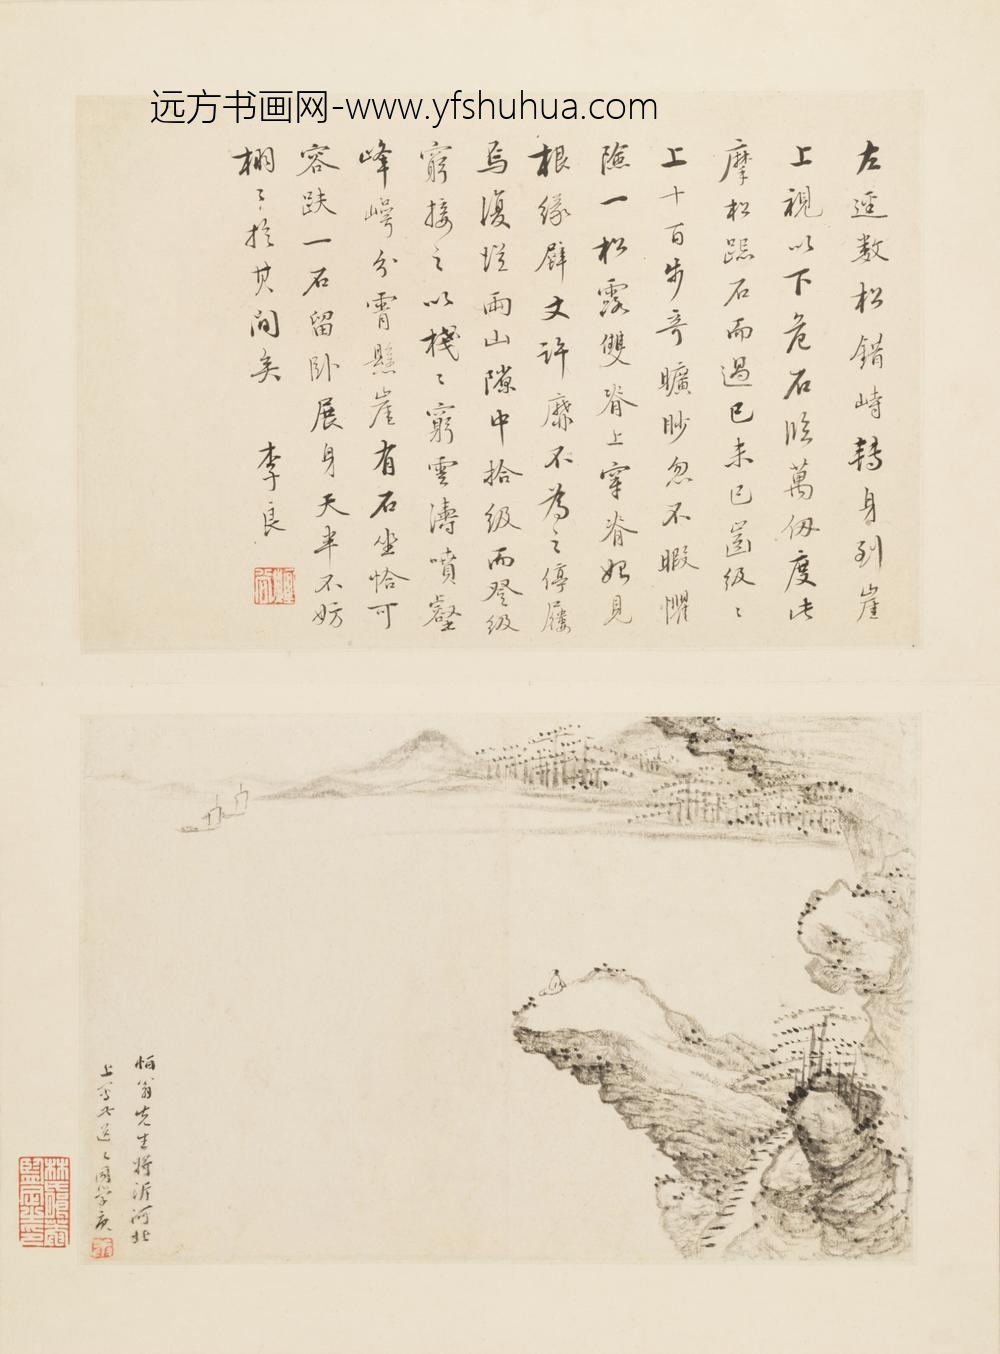 远方书画网-www.yfshuhua.com
左逕数松錯峙轉身到崖
上視以下危石臨萬仞度此
摩松踞石而過已未已茵级〻
上十百步奇曠眇忽不暇懼
險一松露雙脊上穿脊始見
根緣壁丈許靡不為之停屨
焉復従兩山隙中拾级而登级
窮接之以棧〻窮雲濤噴壑
峰㟧分霄懸崖有石坐恰可
容趺一石留卧展身天半不妨
栩〻於其间矣
李良
怕翁先生将泝河北
上写此送之